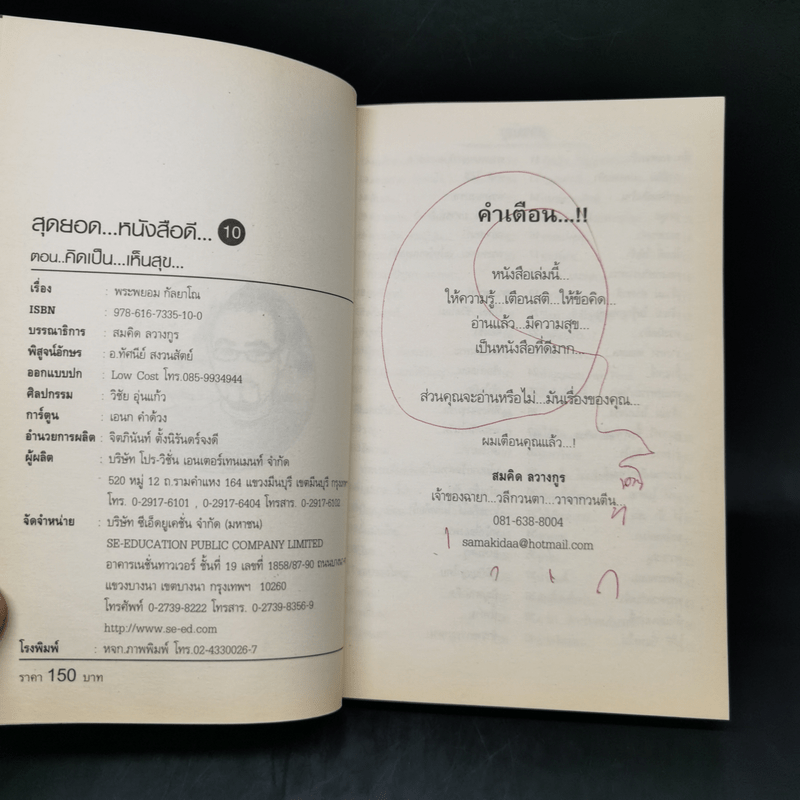 สุดยอด...หนังสือดี... 10
ตอน..คิดเป็น...เห็นสุข...
เรื่อง : พระพยอม กัลยาโณ
ISBN : 978-616-7335-10-0
บรรณาธิการ : สมคิด ลวางกูร
พิสูจน์อักษร : อ.ทัศนีย์ สงวนสัตย์
ออกแบบปก : Low Cost โทร.085-9934944
ศิลปกรรม : วิชัย อุ่นแก้ว
การ์ตูน : เอนก คำด้วง
อำนวยการผลิต : จิตภินันท์ ตั้งนิรันดร์จงดี
ผู้ผลิต : บริษัท โปร-วิชั่น เอนเตอร์เทนเมนท์ จำกัด
520 หมู่ 12 ถ.รามคำแหง 164 แขวงมีนบุรี เขตมีนบุรี กรุงเทพฯ
โทร. 0-2917-6101 , 0-2917-6404 โทรสาร. 0-2917-6102
จัดจำหน่าย : บริษัท ซีเอ็ดยูเคชั่น จำกัด (มหาชน)
SE-EDUCATION PUBLIC COMPANY LIMITED
อาคารเนชั่นทาวเวอร์ ชั้นที่ 19 เลขที่ 1858/87-90 ถนนบางนา
แขวงบางนา เขตบางนา กรุงเทพฯ 10260
โทรศัพท์ 0-2739-8222 โทรสาร. 0-2739-8356-9
http://www.se-ed.com
โรงพิมพ์ : หจก.ภาพพิมพ์ โทร.02-4330026-7
ราคา 150 บาท
คำเตือน...!!
หนังสือเล่มนี้...
ให้ความรู้...เตือนสติ...ให้ข้อคิด...
อ่านแล้ว...มีความสุข...
เป็นหนังสือที่ดีมาก...
ส่วนคุณจะอ่านหรือไม่...มันเรื่องของคุณ...
ผมเตือนคุณแล้ว...!
สมคิด ลวางกูร
เจ้าของฉายา...วลีกวนตา...วาจากวนตีน
081-638-8004
samakidaa@hotmail.com